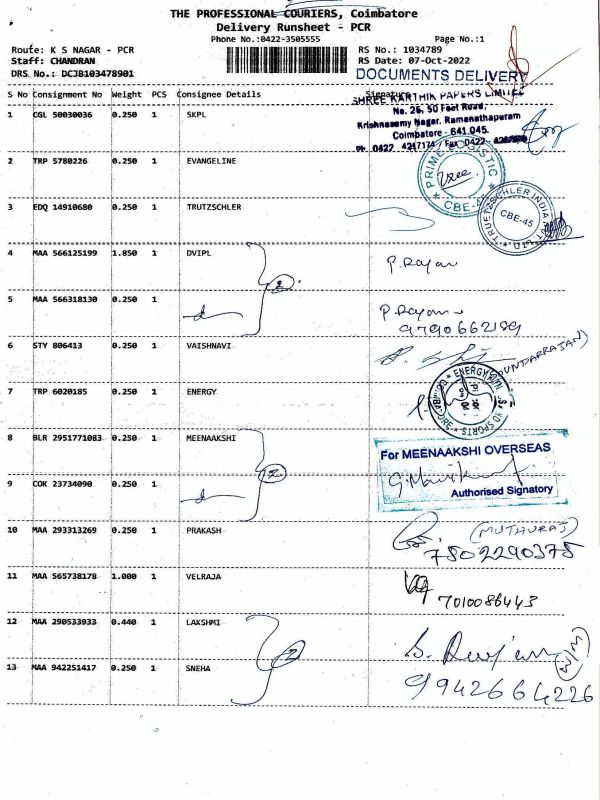 THE PROFESSIONAL COURIERS, Coimbatore
Delivery Runsheet - PCR
Phone No.:0422-3505555 Page No.:1
Route: K S NAGAR - PCR RS No.: 1034789
Staff: CHANDRAN RS Date: 07-Oct-2022
DRS No.: DCJB103478901 DOCUMENTS DELIVERY
S No Consignment No Weight PCS Consignee Details Signature
SHREE KARTHIK PAPERS LIMITED
No. 25, 50 Feet Road,
1 CGL 50030036 0.250 1 SKPL
Krishnasamy Nagar, Ramanathapuram
Coimbatore - 641 045.
Ph. 0422 4217174 / Fax 0422
PRIME LOGISTIC
CBE-45
2 TRP 5780226 0.250 1 EVANGELINE
3 EDQ 14910680 0.250 1 TRUTZSCHLER
TRUETZSCHLER INDIA PVT. LTD
CBE-45
4 MAA 566125199 1.850 1 DVIPL
2
P. Rajan
5 MAA 566318130 0.250 1
P. Rajan
9790662189
6 STY 806413 0.250 1 VAISHNAVI
7 TRP 6020185 0.250 1 ENERGY
8 BLR 2951771083 0.250 1 MEENAAKSHI
2
For MEENAAKSHI OVERSEAS
Authorised Signatory
9 COK 23734090 0.250 1
10 MAA 293313269 0.250 1 PRAKASH
(MUTHURAJ)
7502290375
11 MAA 565738178 1.000 1 VELRAJA
7010086443
12 MAA 290533933 0.440 1 LAKSHMI
2
13 MAA 942251417 0.250 1 SNEHA
9942664226